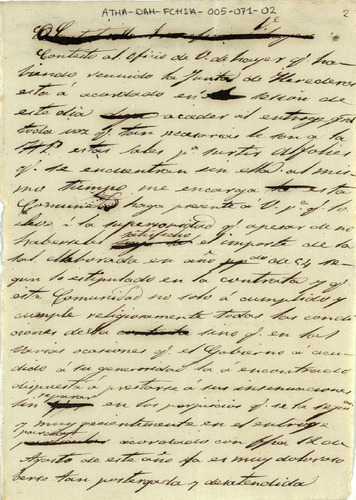 ATHA-DAH-FCHSA-005-071-02
2
Contesto al oficio de V. de hoy y qe ha-
biendo reunido la Junta de Herederos
esta á acordado en sesion de
este dia acceder al entrego
toda vez qe tan necesarias le son a la
estas sales pa surtir Alfolies
qe se encuentran sin ella al mis-
mo tiempo me encarga esta
Comunidad haga presente á V. pa qe lo
eleve á la superioridad qe apesar de no
haberse satisfecho el importe de la
sal elaborada en año de 54 se-
gun lo estipulado en la contrata y qe
esta Comunidad no solo á cumplido y
cumple religiosamente todas las condi-
ciones de la sino qe en las
varias ocasiones qe el Gobierno á acu-
dido á su generosidad la á encontrado
dispuesta á prestarse á sus insinuaciones
sin reparar en los perjuicios qe se la
y muy recientemente en el entrego
acordado con fha 12 de
Agosto de este año la es muy doloroso
verse tan postergada y desatendida